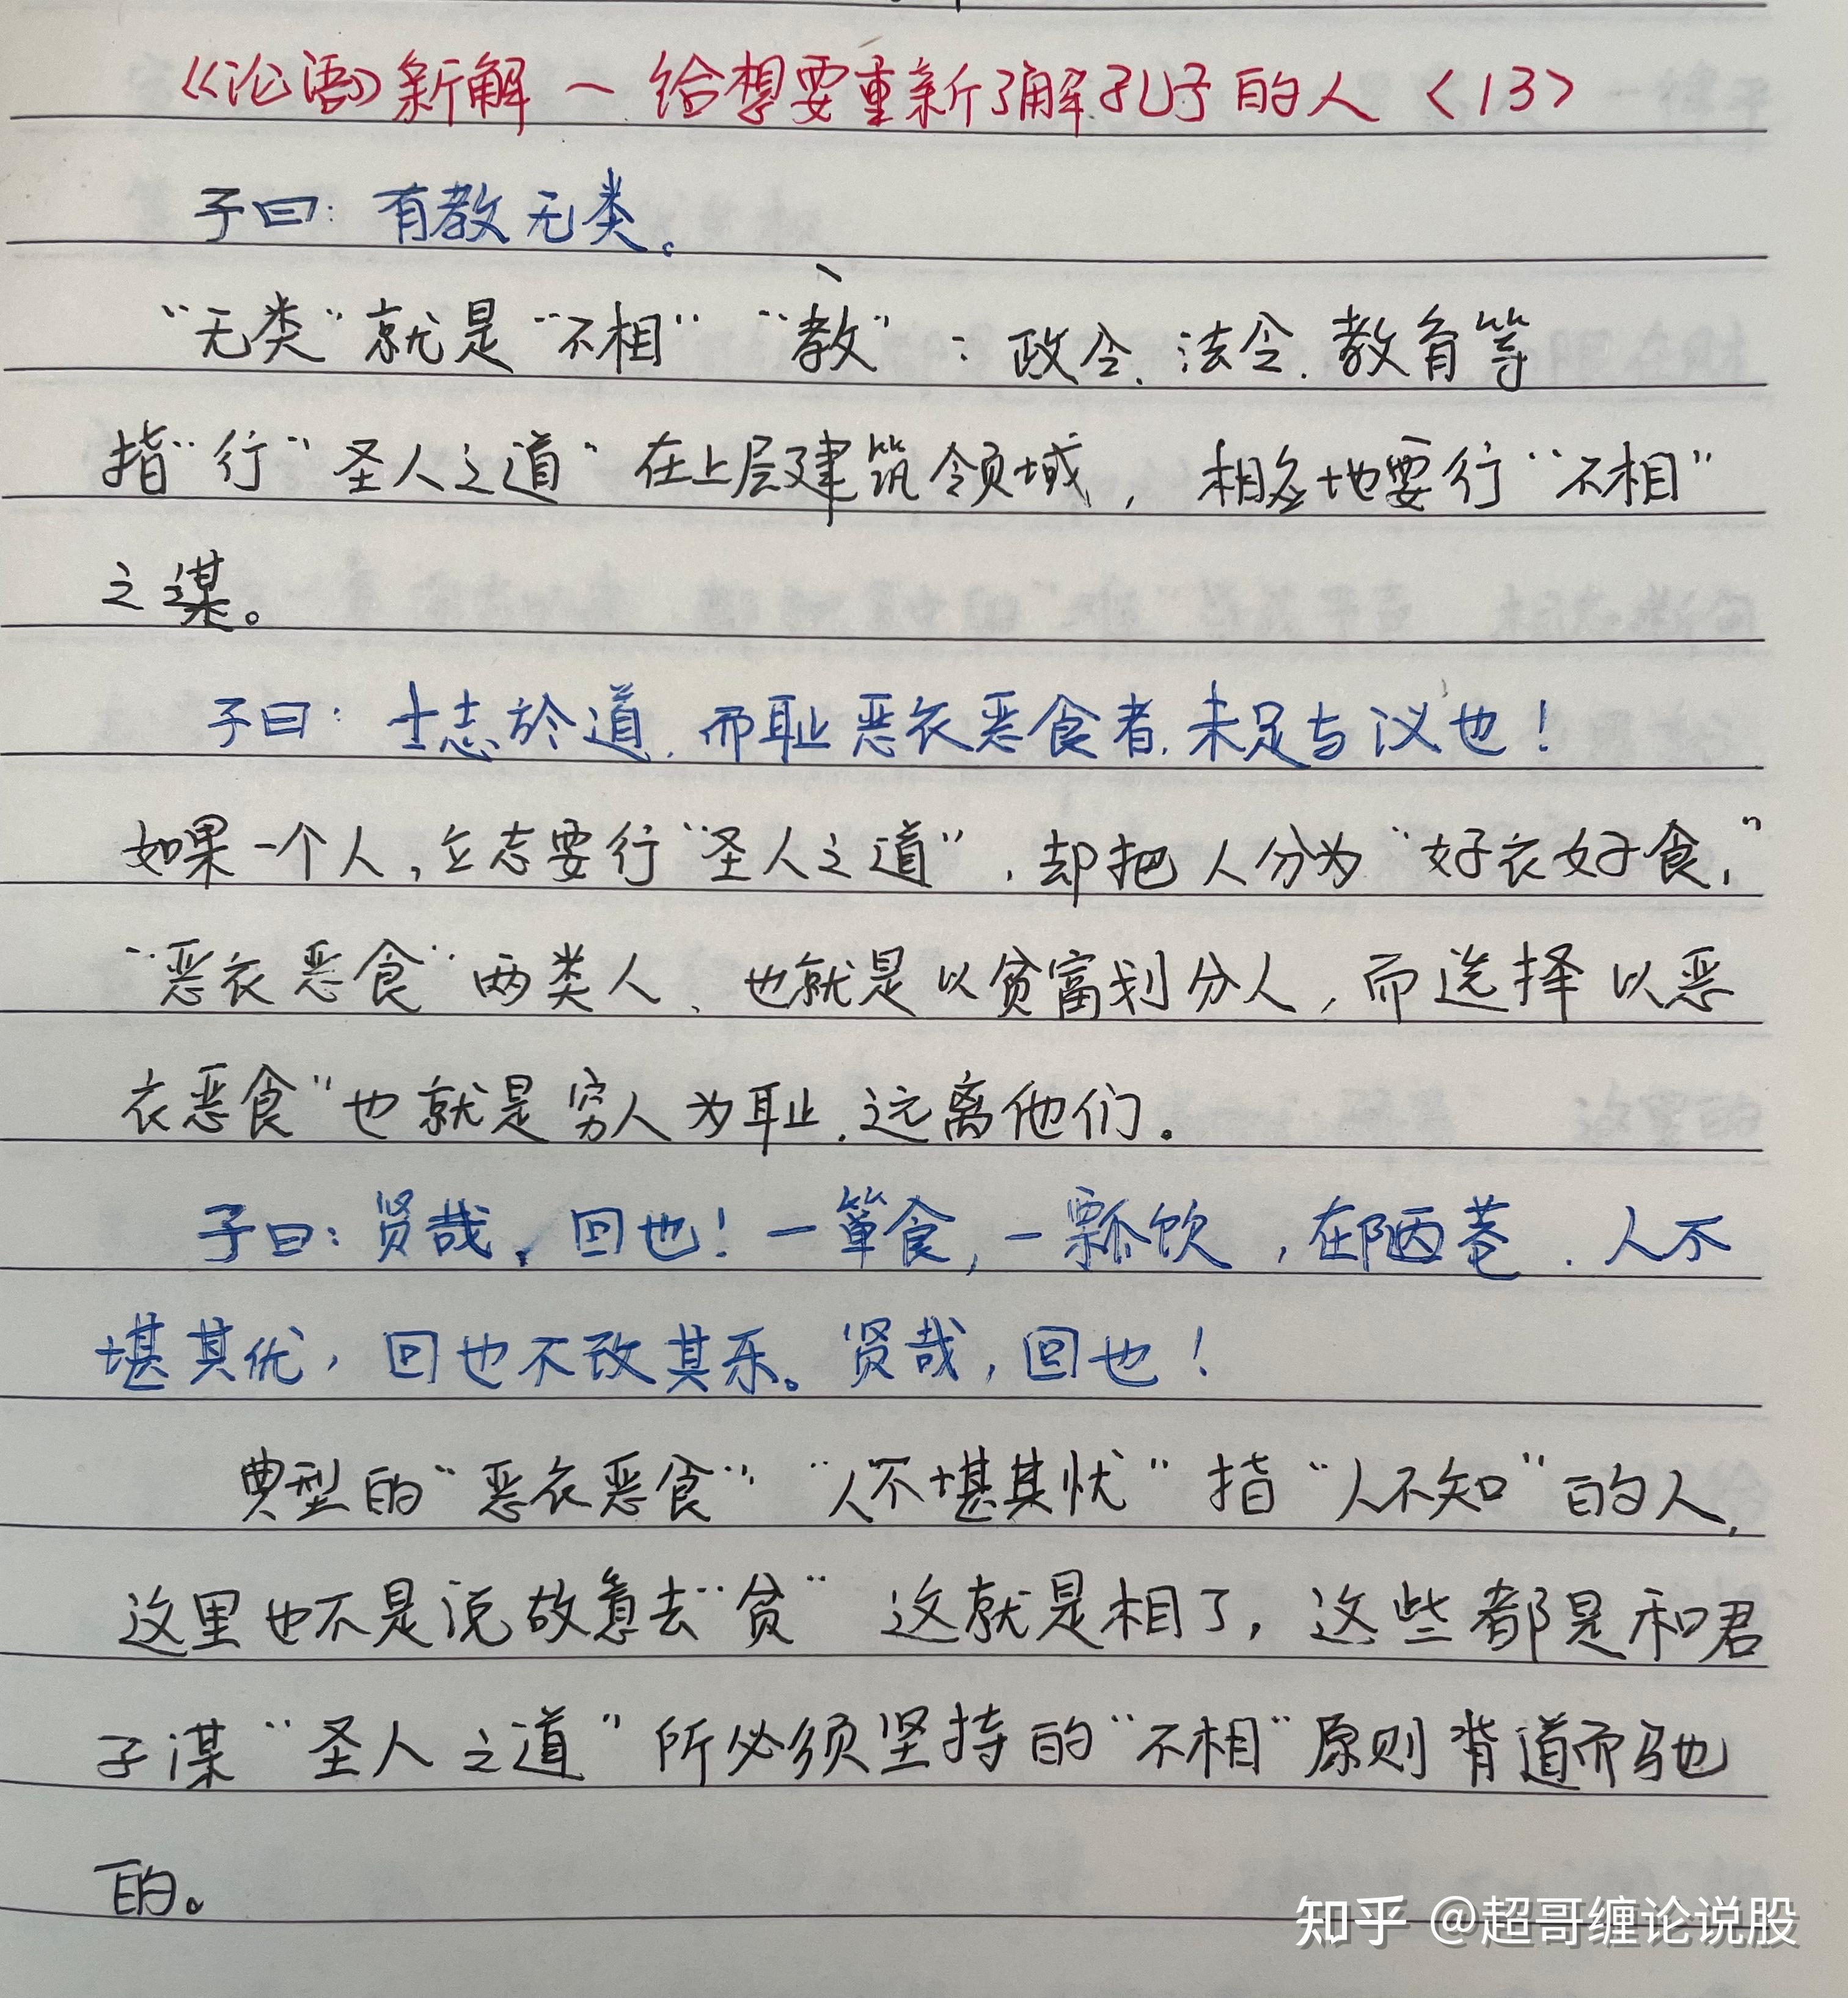 《论语》新解一给想要重新了解孔子的人〈13〉
子曰：有教无类。
“无类”就是“不相”“教”：政令、法令、教育等
指“行“圣人之道”在上层建筑领域，相应地要行“不相”
之谋。
子曰：士志於道，而耻恶衣恶食者，未足与议也！
如果一个人，立志要行“圣人之道”，却把人分为“好衣好食，”
“恶衣恶食”两类人、也就是以贫富划分人，而选择以恶
衣恶食”也就是穷人为耻，远离他们。
子曰：贤哉，回也！一箪食，一瓢饮，在陋巷，人不
堪其忧，回也不改其乐。贤哉，回也！
典型的“恶衣恶食”“人不堪其忧”指“人不知”的人，
这里也不是说故意去“贫”这就是相了，这些都是和君
子谋“圣人之道”所必须坚持的“不相”原则背道而驰
的。
知乎 @超哥缠论说股